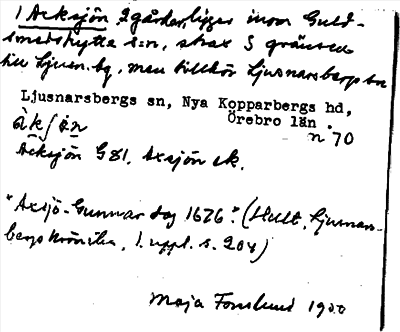 1 Acksjön 2 gårdar ligger inom Guld-
smedshytte s:n, strax S gränsen
till Ljusn.bg, men tillhör Ljusnarsbergs sn
Ljusnarsbergs sn, Nya Kopparbergs hd,
Örebro län
n° 70
àkʃön
Acksjön GSA. Axsjön ek.
"Axsjö-Gunnar dog 1676." (Hult, Ljusnars-
bergskrönika, 1. uppl. s. 204)
Maja Forslund 1950